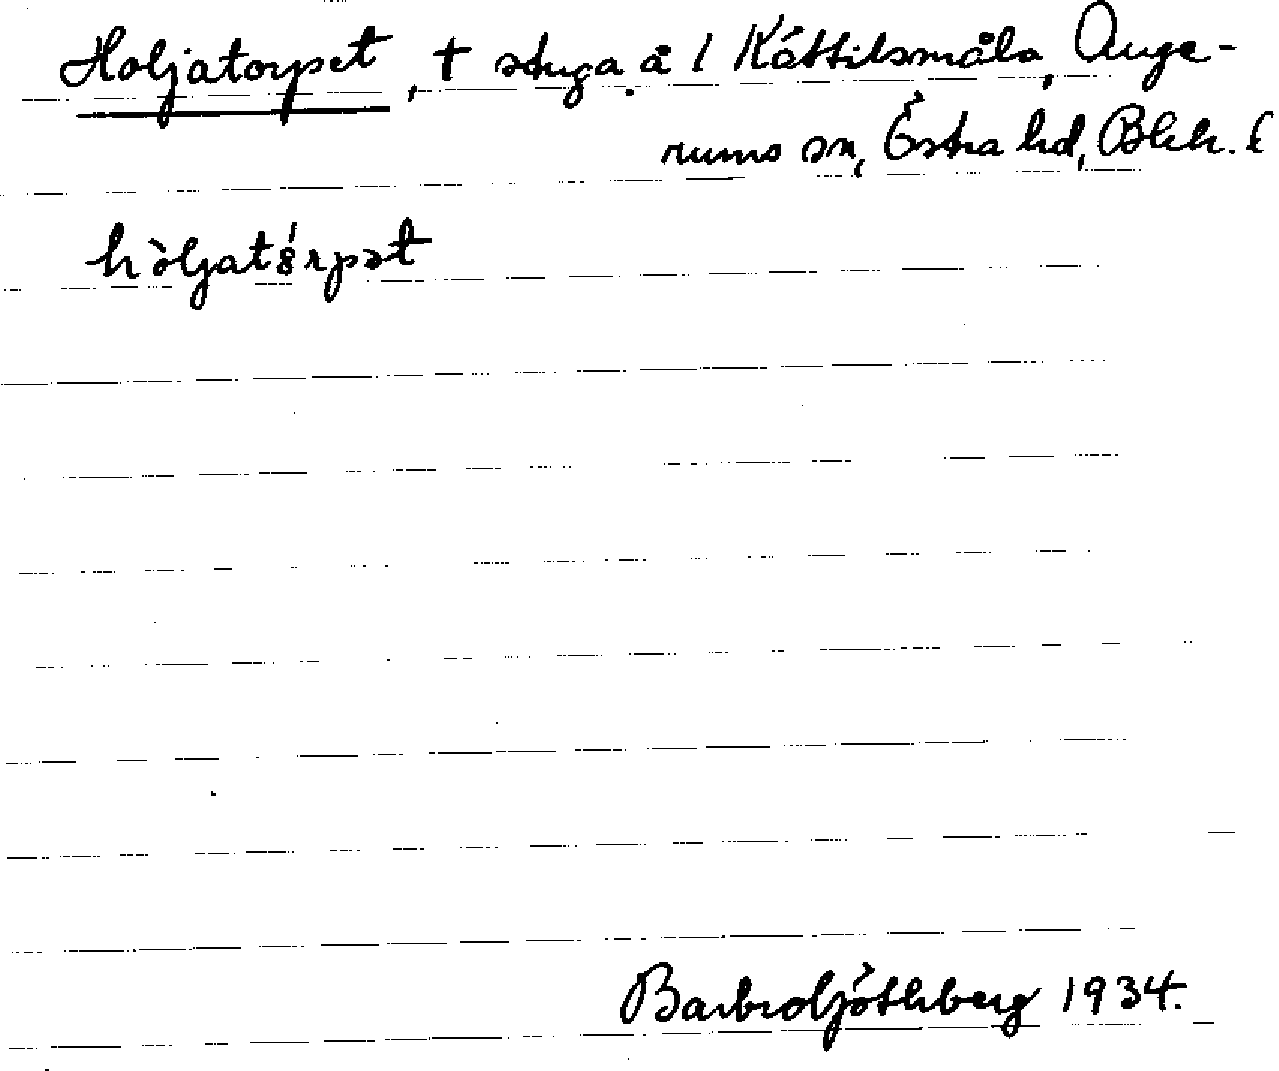 Holjatorpet, † stuga å 1 Kättilsmåla, Auge-
rums sn, Östra hd, Blek. l
hòljatórpət
Barbro Götlberg 1934.